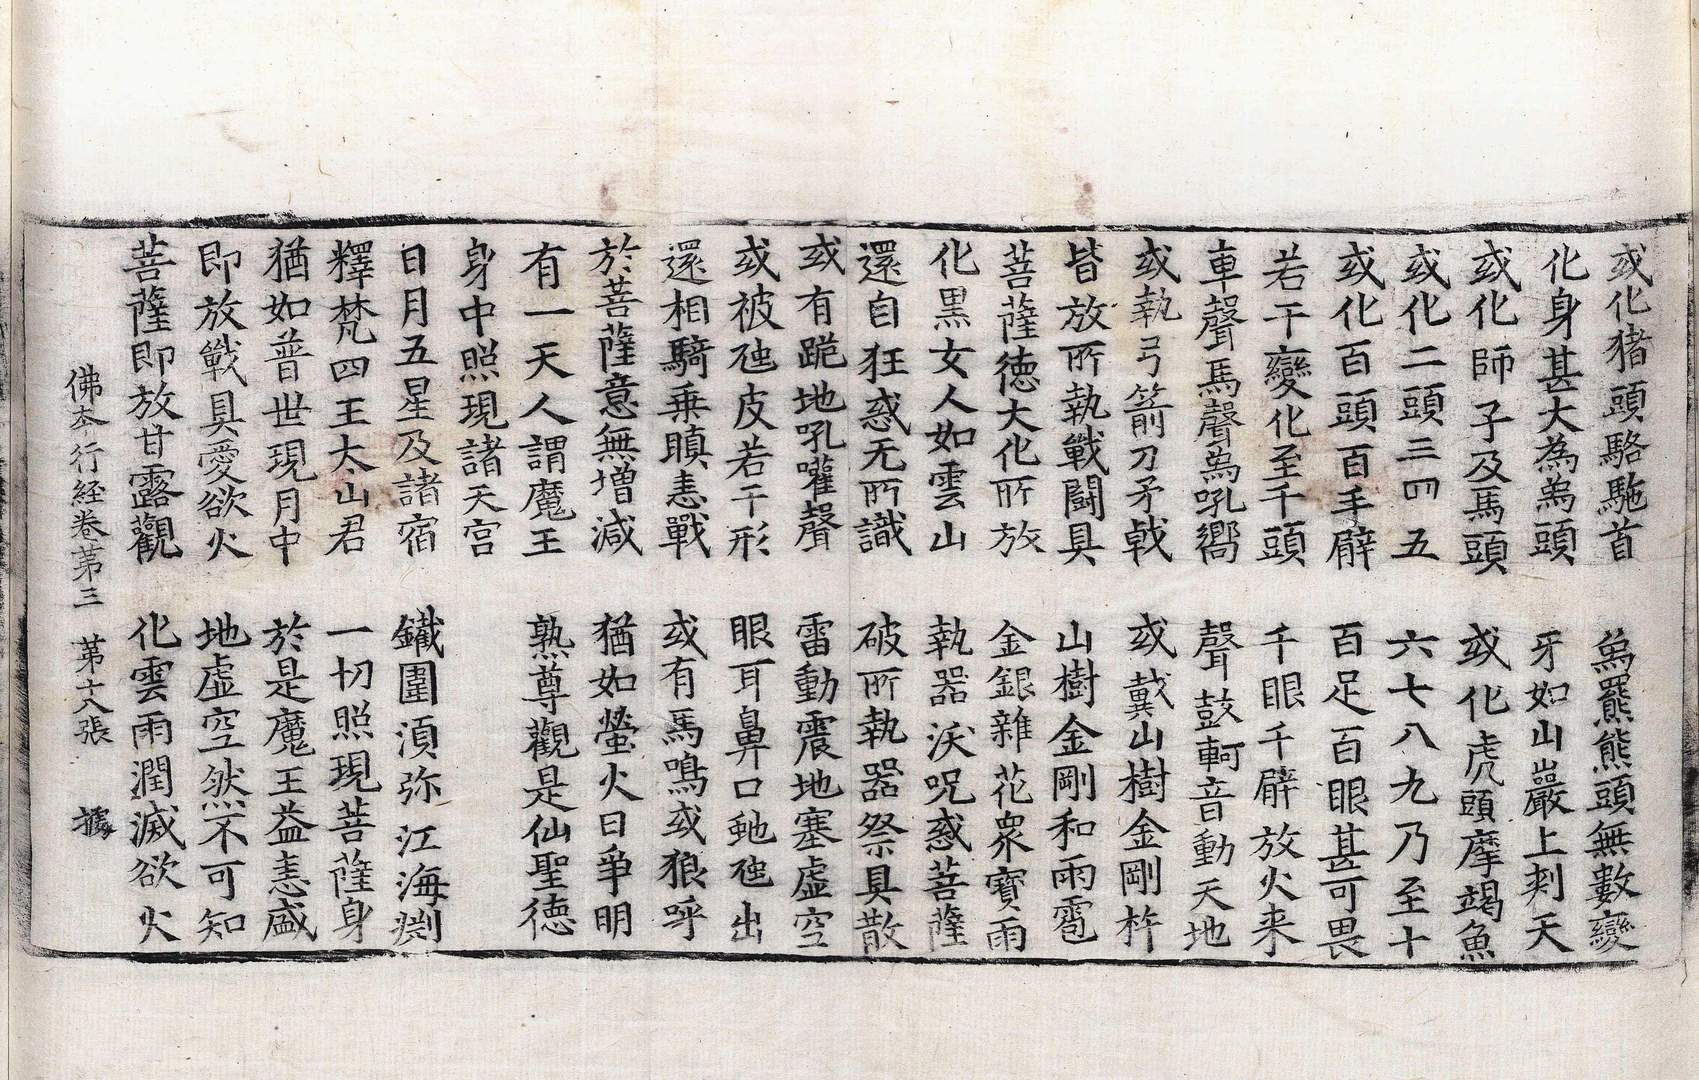 或化猪頭駱駞首　象羆熊頭無數變
化身甚大為象頭　牙如山巖上刺天
或化師子及馬頭　或化虎頭摩竭魚
或化二頭三四五　六七八九乃至十
或化百頭百手臂　百足百眼甚可畏
若干變化至千頭　千眼千臂放火来
車聲馬聲象吼嚮　聲鼓軻音動天地
或執弓箭刀矛戟　或戴山樹金剛杵
皆放所執戰鬪具　山樹金剛和雨雹
菩薩德大化所放　金銀雜花衆寶雨
化黒女人如雲山　執器沃呪惑菩薩
還自狂惑无所識　破所執器祭具散
或有跪地吼嚾聲　雷動震地塞虛空
或被虵皮若干形　眼耳鼻口虵虺出
還相騎乗瞋恚戰　或有馬鳴或狼呼
於菩薩意無增減　猶如螢火日爭明
有一天人謂魔王　熟尊觀是仙聖德
身中照現諸天宮
日月五星及諸宿　鐵圍湏弥江海渕
釋梵四王太山君　一切照現菩薩身
猶如普世現月中　於是魔王益恚盛
即放戰具愛欲火　地虛空然不可知
菩薩即放甘露觀　化雲雨潤滅欲火
佛夲行経巻第三　第十八張　據